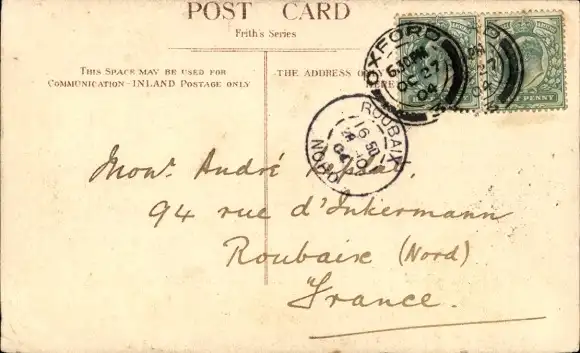 POST CARD
Frith's Series
THIS SPACE MAY BE USED FOR
COMMUNICATION - INLAND POSTAGE ONLY
THE ADDRESS
HERE
OXFORD
6.30PM
OC 27
04
ROUBAIX
16 50
28 10
04
NORD
Monr. André
94 rue d'Inkermann
Roubaix (Nord)
France.